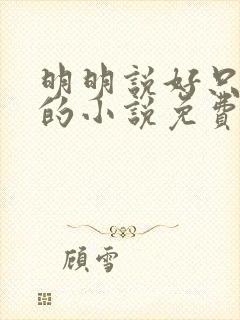 明明說好只
的小說免費
顧雪